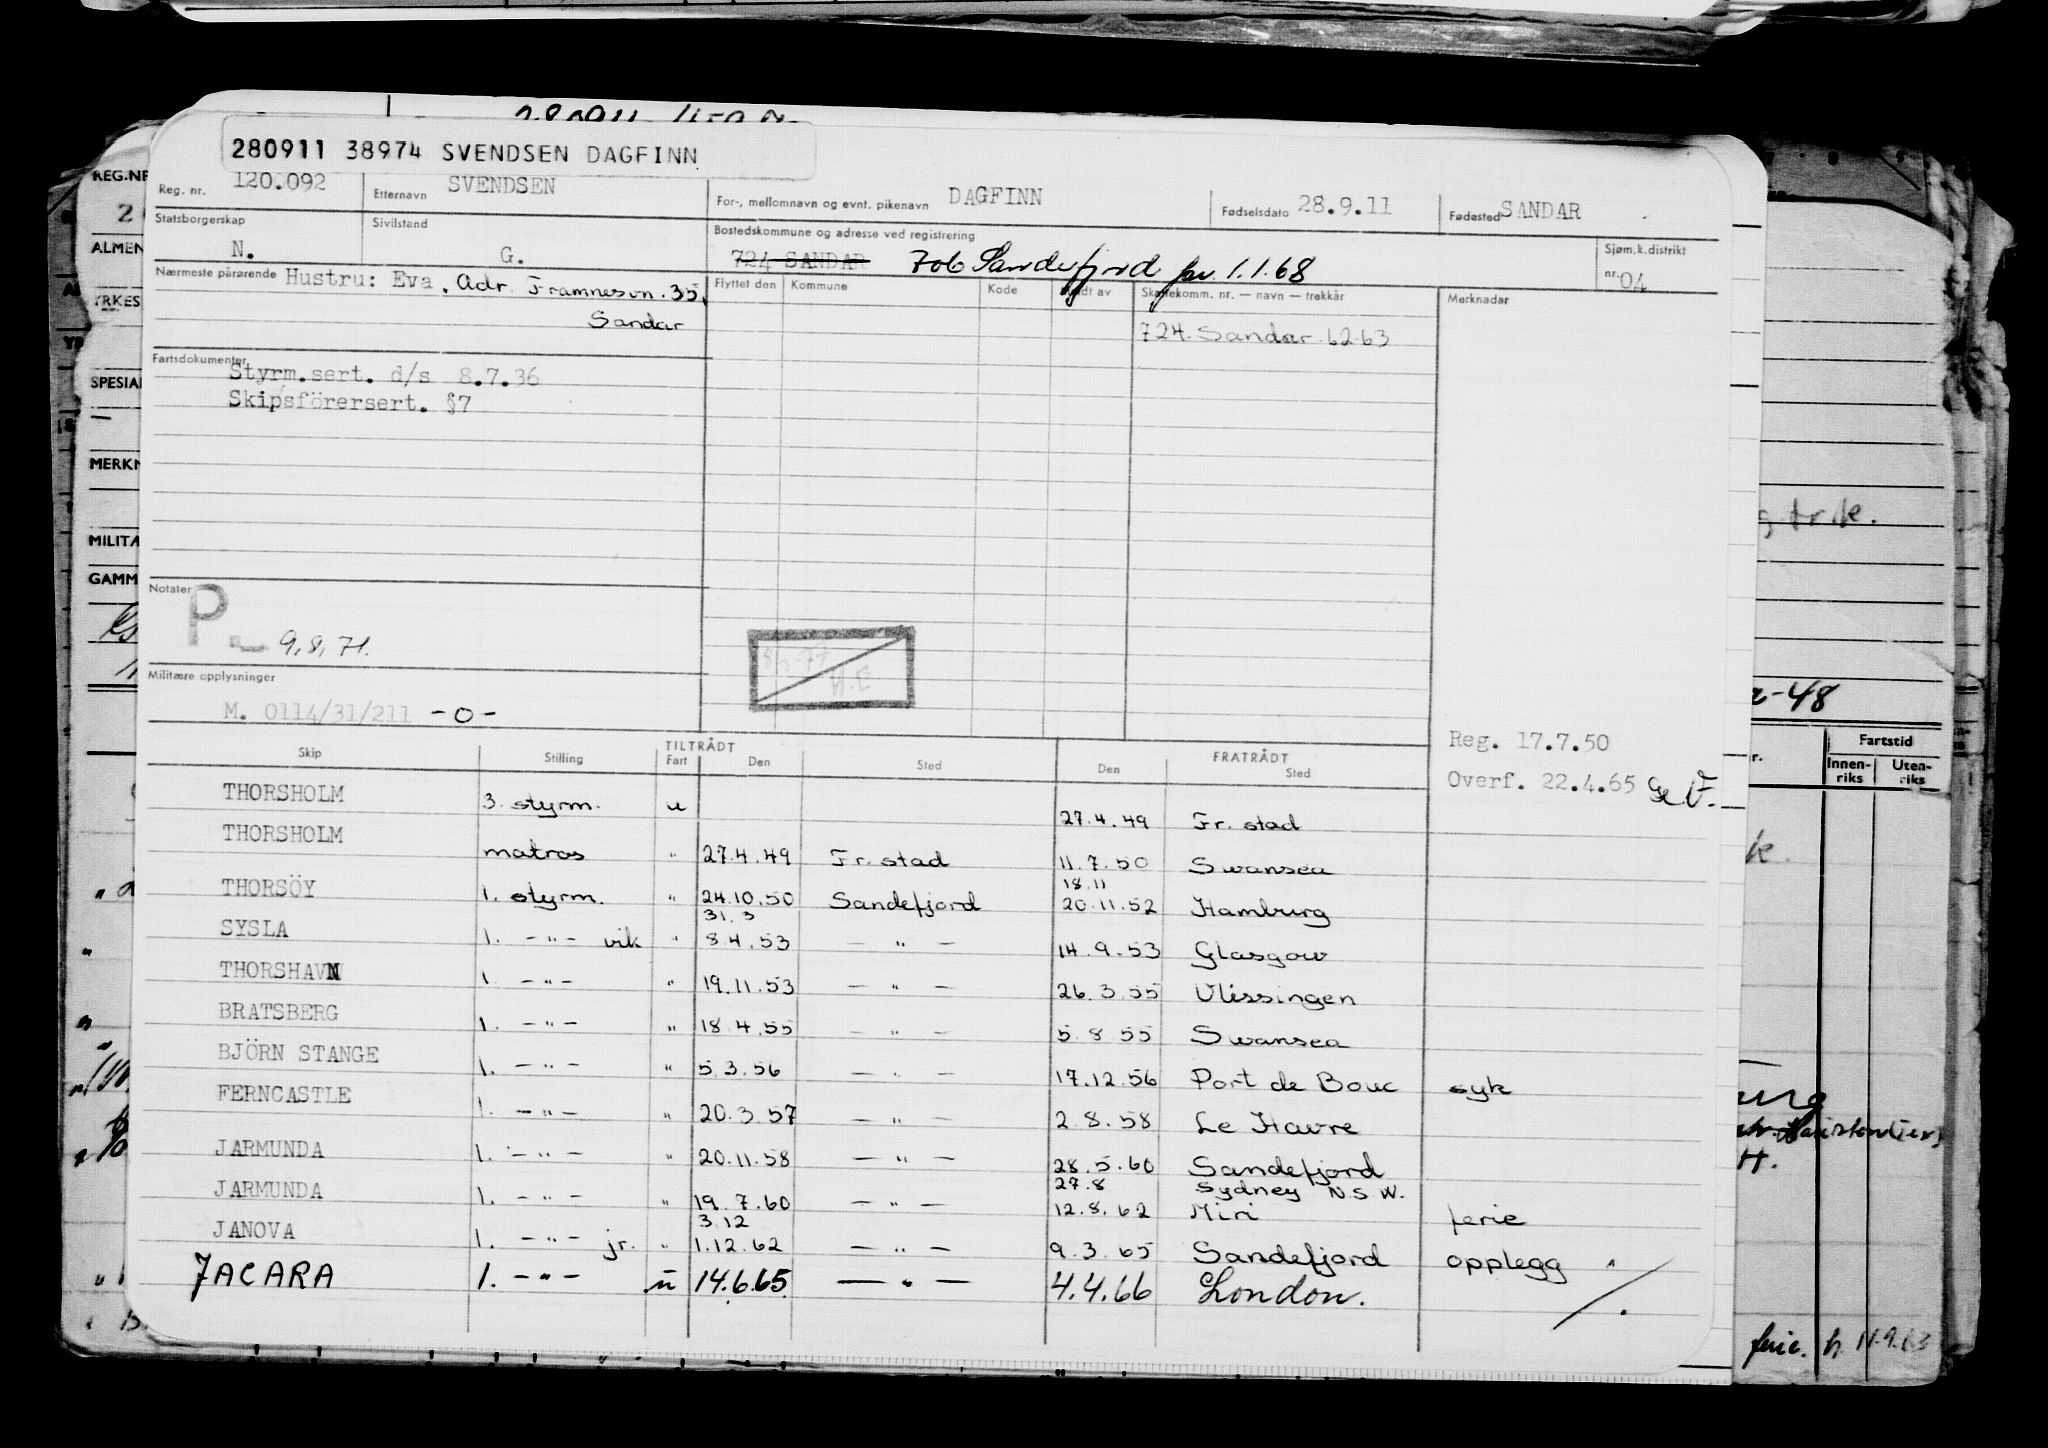 280911 38974 SVENDSEN DAGFINN
REG.NR
Reg. nr. 120.092 Etternavn SVENDSEN For-, mellomnavn og evnt. pikenavn DAGFINN Fødselsdato 28.9.11 Fødested SANDAR
Statsborgerskap N. Sivilstand G. Bostedskommune og adresse ved registrering 724 SANDAR 706 Sandefjord pr. 1.1.68 Sjøm.k.distrikt nr. 04
Nærmeste pårørende Hustru: Eva. Adr. Framnesvn. 35, Flyttet den Kommune Kode Skattekomm. nr. — navn — trekkår Merknader
Sandar
724 Sandar 62 63
Fartsdokumenter
Styrm.sert. d/s 8.7.36
Skipsförersert. §7
Notater
P 9.8.71.
Militære opplysninger
M. 0114/31/211 -0-
Reg. 17.7.50
Overf. 22.4.65
TILTRÅDT FRATRÅDT
Skip Stilling Fart Den Sted Den Sted
THORSHOLM 3. styrm. u 27.4.49 Fr. stad
THORSHOLM matros " 27.4.49 Fr. stad 11.7.50 Swansea
18.11
THORSÖY 1. styrm. " 24.10.50 Sandefjord 20.11.52 Hamburg
31.3
SYSLA 1. -"- vik " 8.4.53 — " — 14.9.53 Glasgow
THORSHAVN 1. -"- " 19.11.53 — " — 26.3.55 Vlissingen
BRATSBERG 1. -"- " 18.4.55 — " — 5.8 55 Swansea
BJÖRN STANGE 1. -"- " 5.3.56 — " — 17.12.56 Port de Bouc syk
FERNCASTLE 1. -"- " 20.3.57 — " — 2.8.58 Le Havre
JARMUNDA 1. -"- " 20.11.58 — " — 28.5.60 Sandefjord
27.8 Sydney N.S.W.
JARMUNDA 1. -"- " 19.7.60 — " — 12.8.62 Miri ferie
3.12
JANOVA 1. -"- jr. " 1.12.62 — " — 9.3.65 Sandefjord opplegg
JACARA 1. -"- u 14.6.65 — " — 4.4.66 London.
ALMEN
YRKES
SPESIA
MERKN
MILITÆ
GAMM
-48
Fartstid
Innen-riks Uten-riks
ferie.